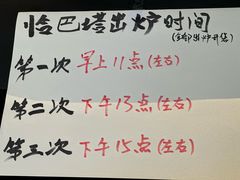 恰巴塔出炉时间
第一次 早上11点(左右)
第二次 下午13点(左右)
第三次 下午15点(左右)